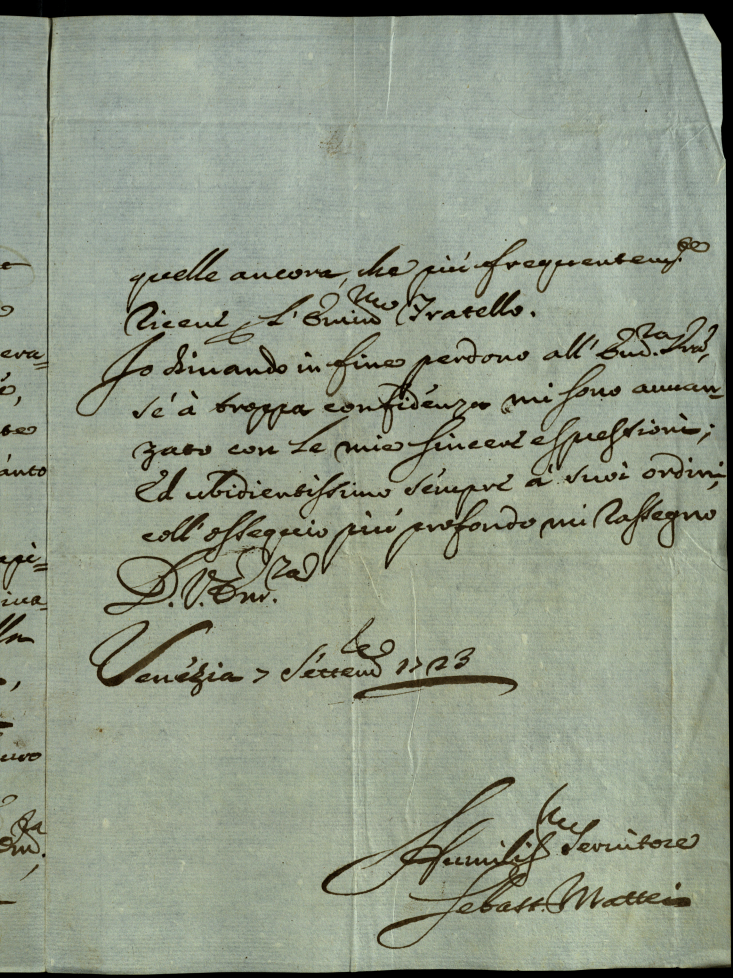 quelle ancora, che più frequentem.te
riceue l'Emin.mo Fratello.
Io dimando in fine perdono all' Em.za Vra,
sé à troppa confidenza mi sono auuan-
zato con le mie sincere espressioni;
Ed ubidientissimo sempre a suoi ordini,
coll' ossequio più profondo mi rassegno
D. V. Em.za
Venézia 7 Séttem.bre 1723
Humiliss.mo Seruitore
Sebast. Mattei